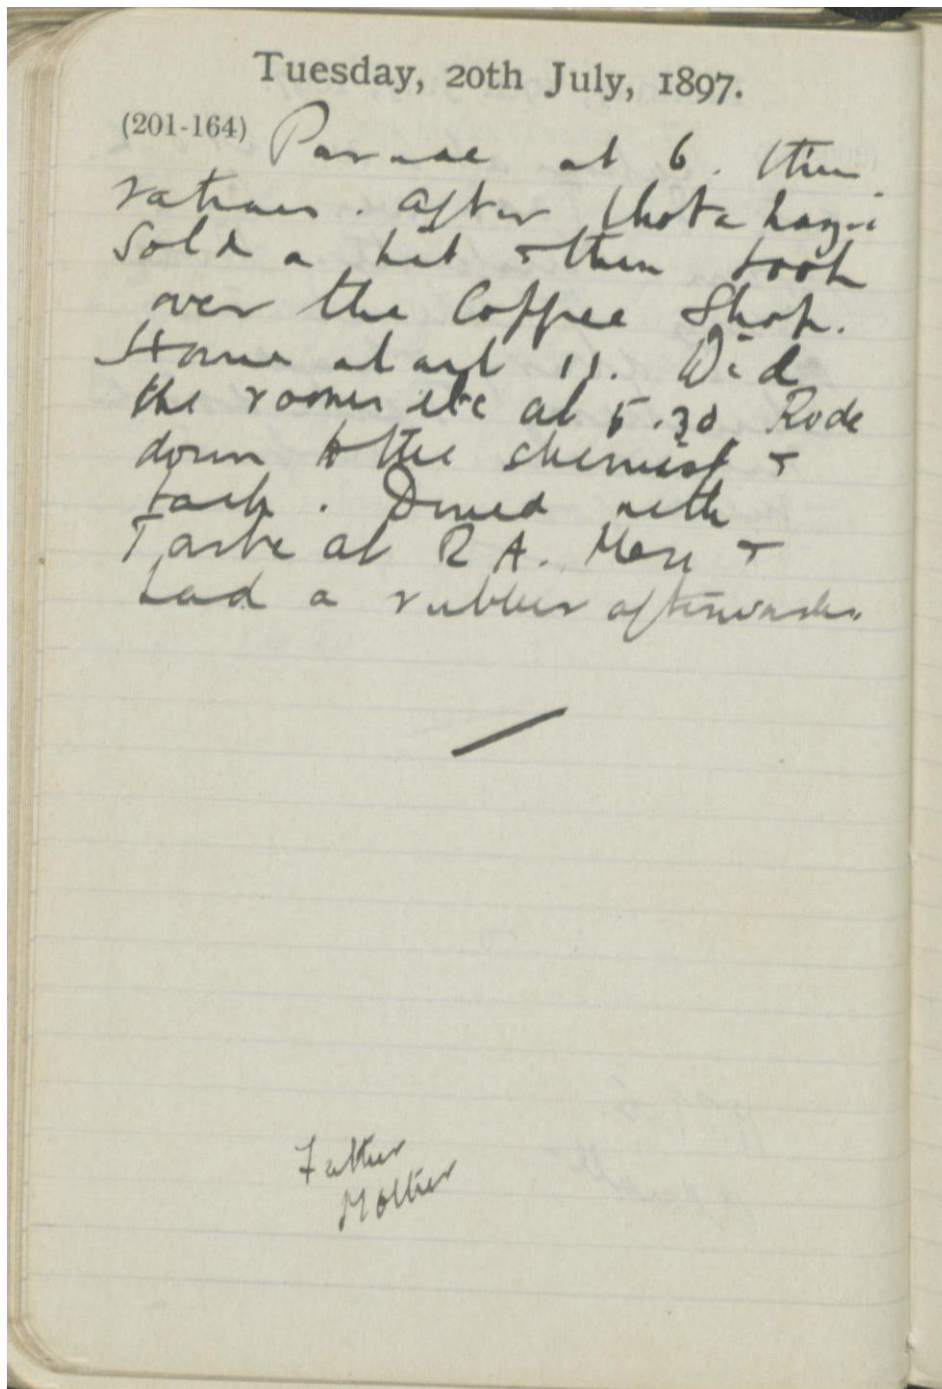 Tuesday, 20th July, 1897.
(201-164) Parade at 6. then
rations. After thota hazri
sold a hat & then took
over the Coffee Shop.
Home about 11. Did
the rooms etc at 5.30 Rode
down to the chemist &
back. Dined with
at R A. Mess &
had a rubber afterwards.
Father
Mother